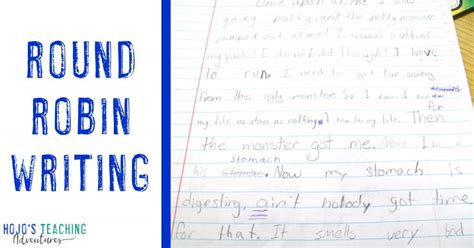 ROUND
ROBIN
WRITING
HOJO'S TEACHING
Adventures
Once upon a time I was
going potty, and the potty monster
jumped out at me! I
my pants! I I did though! I have
to run. I need to get far away
from the ugly monster So I ran I ran for
my life as in nothing my life. Then
the monster got me. Now I'm in
his stomach. Now my stomach is
stomach
digesting, ain't nobody got time
for that. It smells very bad